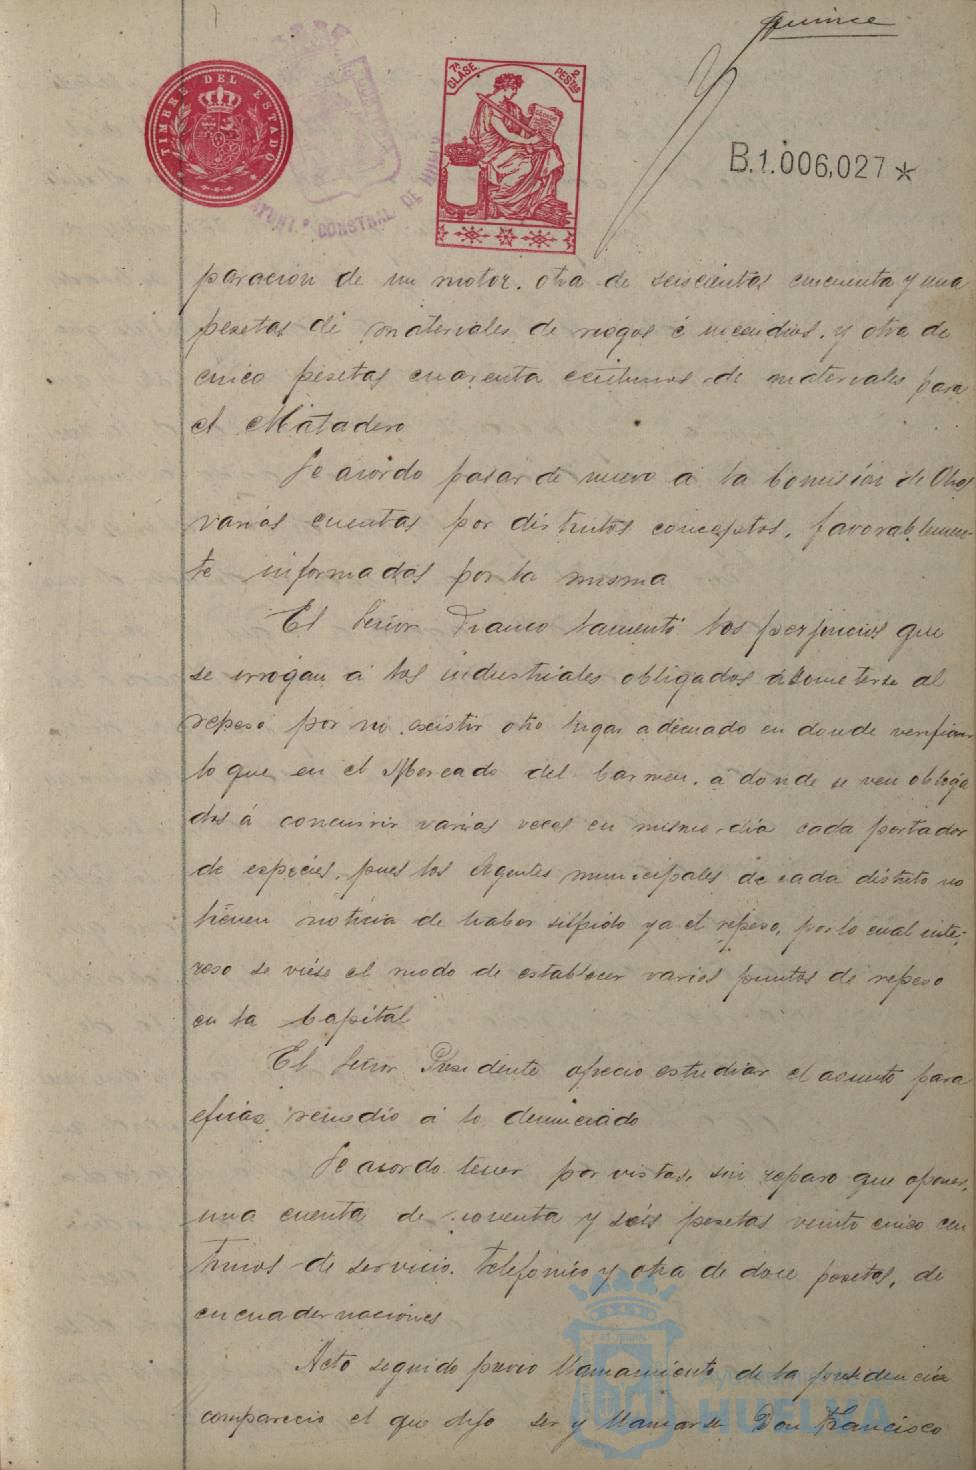 quince
TIMBRE DEL ESTADO
7ª CLASE
2 PESTAS
AYUNTº CONSTNAL DE HUELVA
B.1.006,027*
paración de un motor. otra de seiscientas cincuenta y una
pesetas de materiales de riegos é incendios. y otra de
cinco pesetas cuarenta centimos de materiales para
el Matadero
Se acordó pasar de nuevo a la Comisión de Obras
varias cuentas por distintos conceptos, favorablemen-
te informadas por la misma
El Señor Franco lamentó los perjuicios que
se irrogan a los industriales obligados á someterse al
repeso por no existir otro lugar adecuado en donde verificar
lo que en el Mercado del Carmen. a donde se ven obliga
dos á concurrir varias veces en mismo día cada portador
de especies. pues los Agentes municipales de cada distrito no
tienen noticia de haber sufrido ya el repeso, por lo cual inte-
reso se viése el modo de establecer varios puntos de repeso
en la Capital
El Señor Presidente ofreció estudiar el asunto para
eficaz remedio á lo denunciado
Se acordo tener por vistas, sin reparo que oponer,
una cuenta de noventa y seis pesetas veinte cinco cen
timos de servicio telefónico y otra de doce pesetas, de
encuadernaciones
Acto seguido previo llamamiento de la presidencia
compareció el que dijo ser y llamarse Don Francisco
Ayuntamiento de
HUELVA